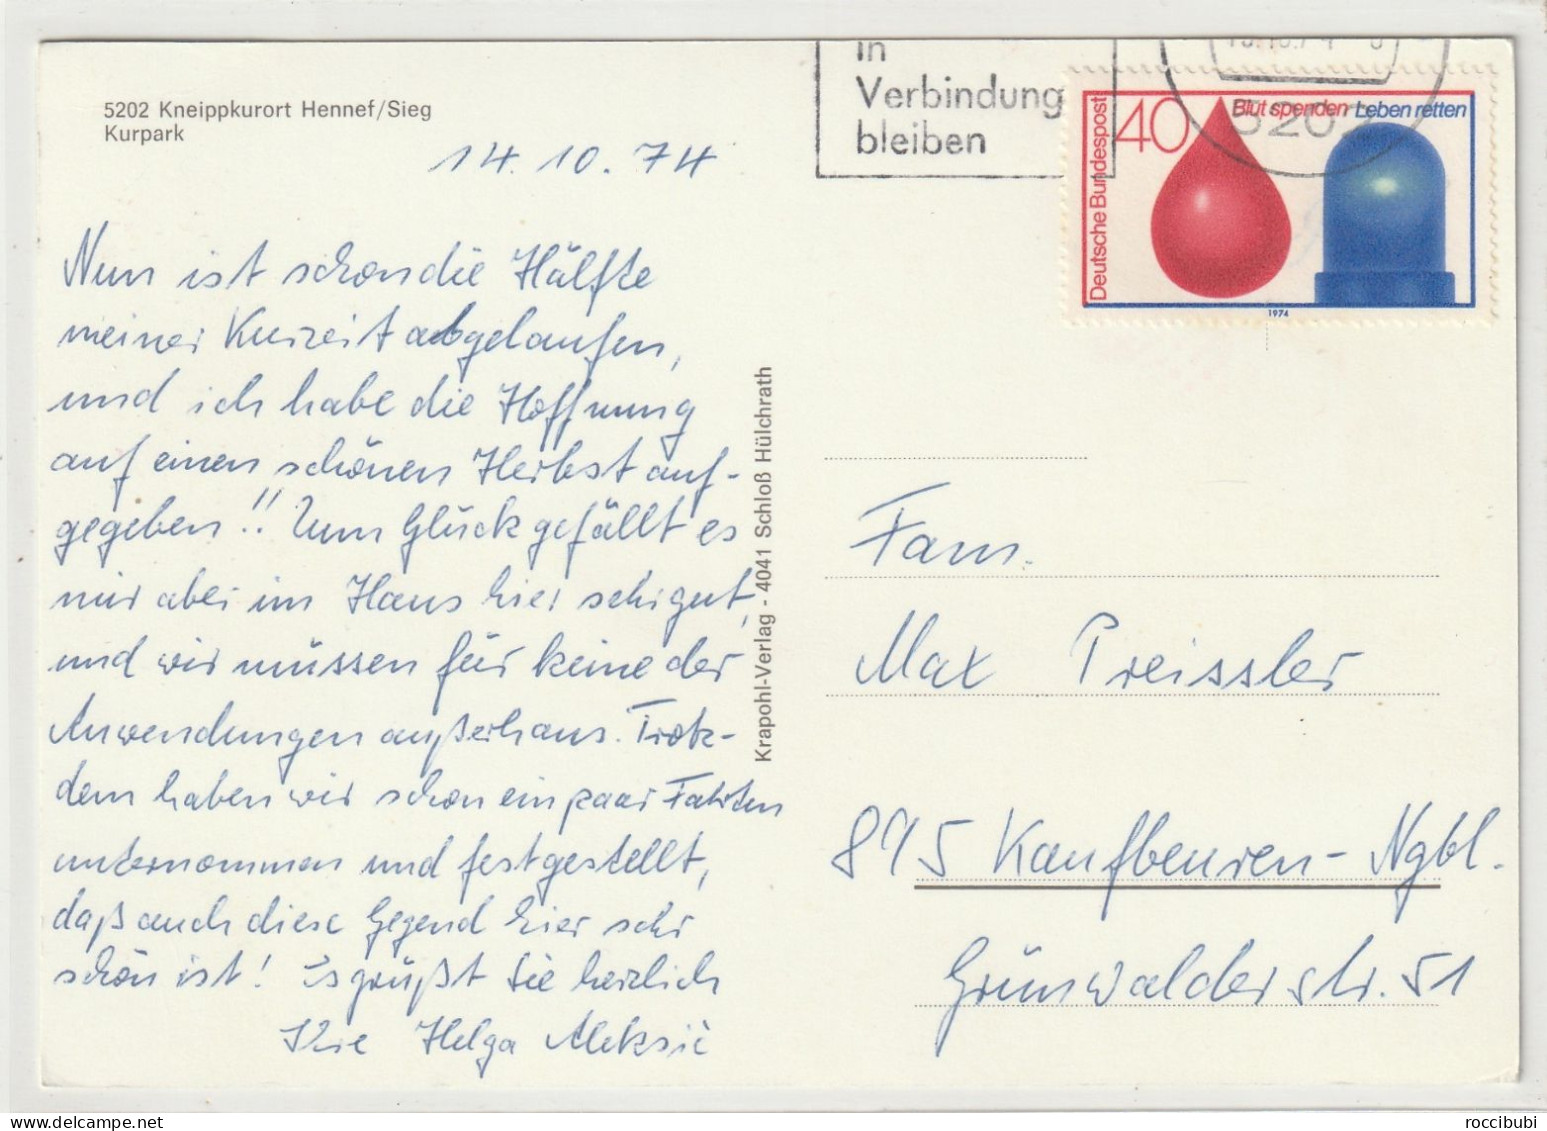 5202 Kneippkurort Hennef/Sieg
Kurpark
14.10.74
Nun ist schon die Hälfte
meiner Kurzeit abgelaufen,
und ich habe die Hoffnung
auf einen schönen Herbst auf-
gegeben!! Zum Glück gefällt es
mir aber im Haus hier sehr gut,
und wir müssen für keine der
Anwendungen außerhaus. Trotz-
dem haben wir schon ein paar Fahrten
unternommen und festgestellt,
daß auch diese Gegend hier sehr
schön ist! Es grüßt Sie herzlich
Ihre Helga Aleksić
Krapohl-Verlag - 4041 Schloß Hülchrath
in
Verbindung
bleiben
5202
Deutsche Bundespost
40
Blut spenden Leben retten
1974
Fam.
Max Preissler
895 Kaufbeuren-Ngbl.
Grünwalderstr. 51
roccibubi